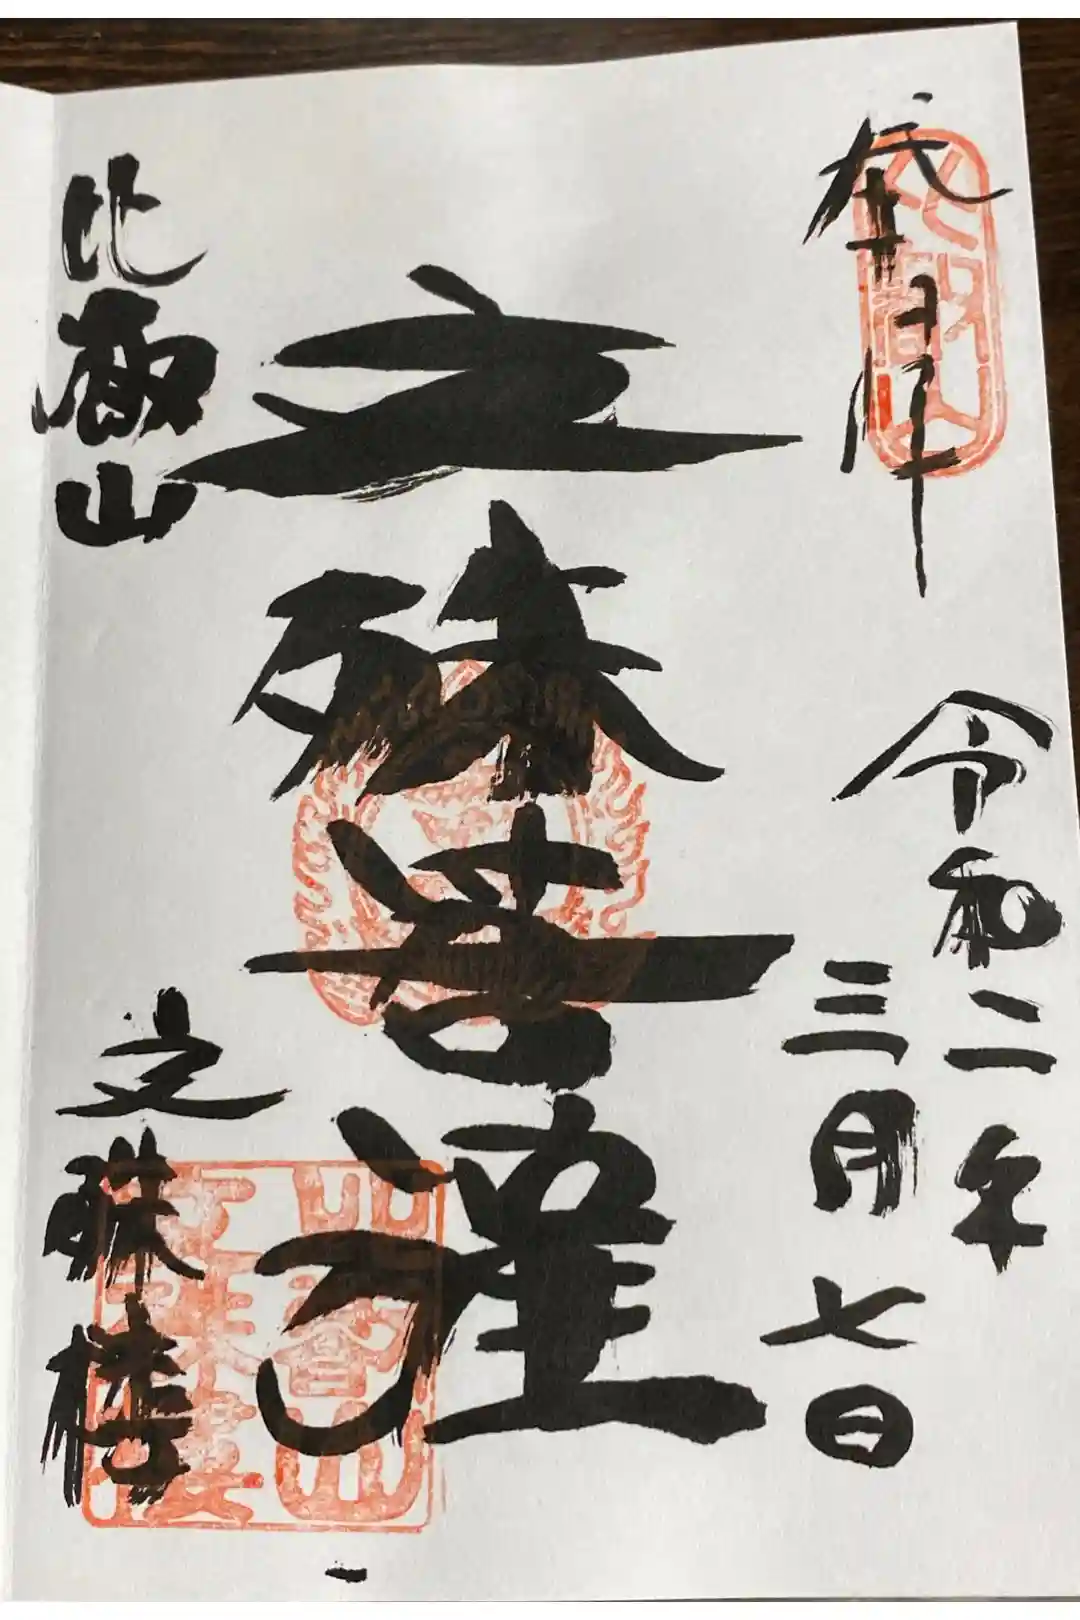 奉拝
比叡山
令和二年
三月七日
文殊菩薩
比叡山
文殊楼